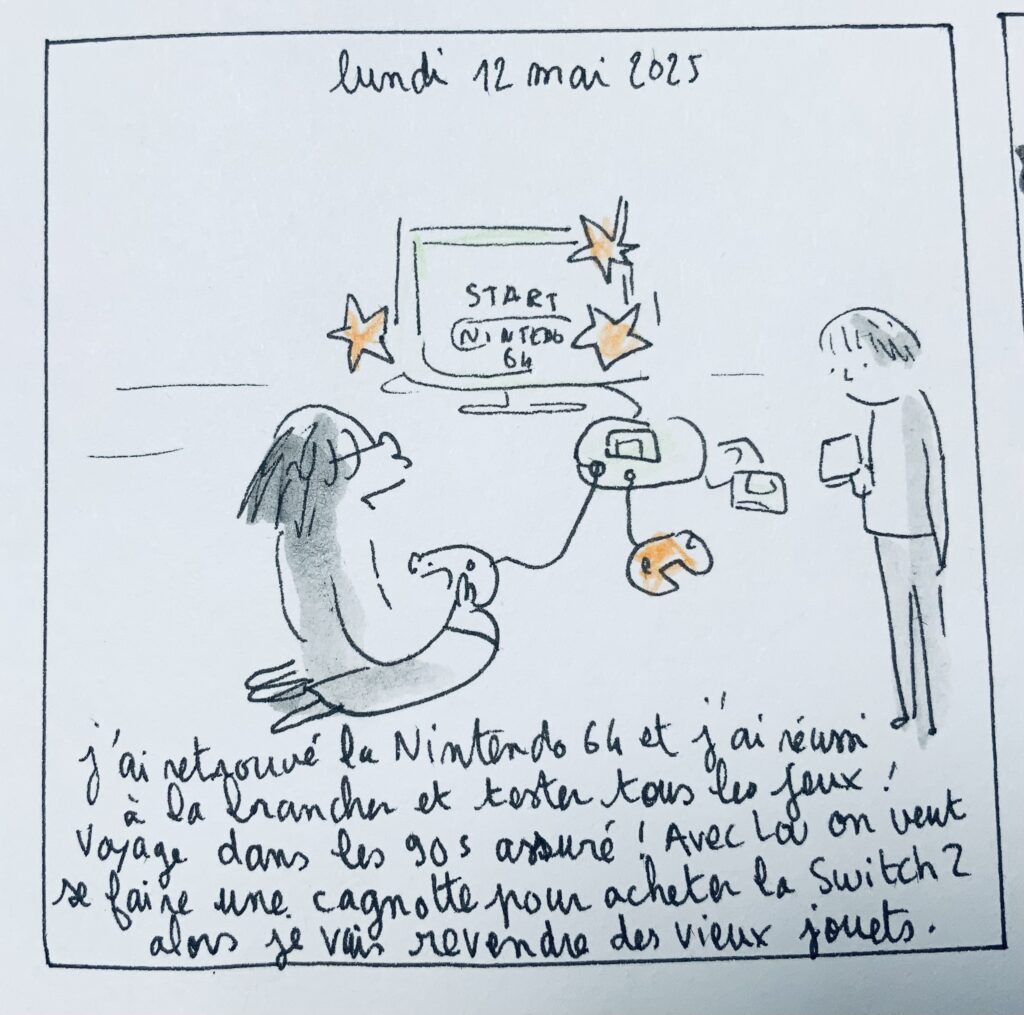 lundi 12 mai 2025
START
NINTENDO
64
j'ai retrouvé la Nintendo 64 et j'ai réussi
à la brancher et tester tous les jeux !
Voyage dans les 90s assuré ! Avec Lou on veut
se faire une cagnotte pour acheter la Switch 2
alors je vais revendre des vieux jouets.